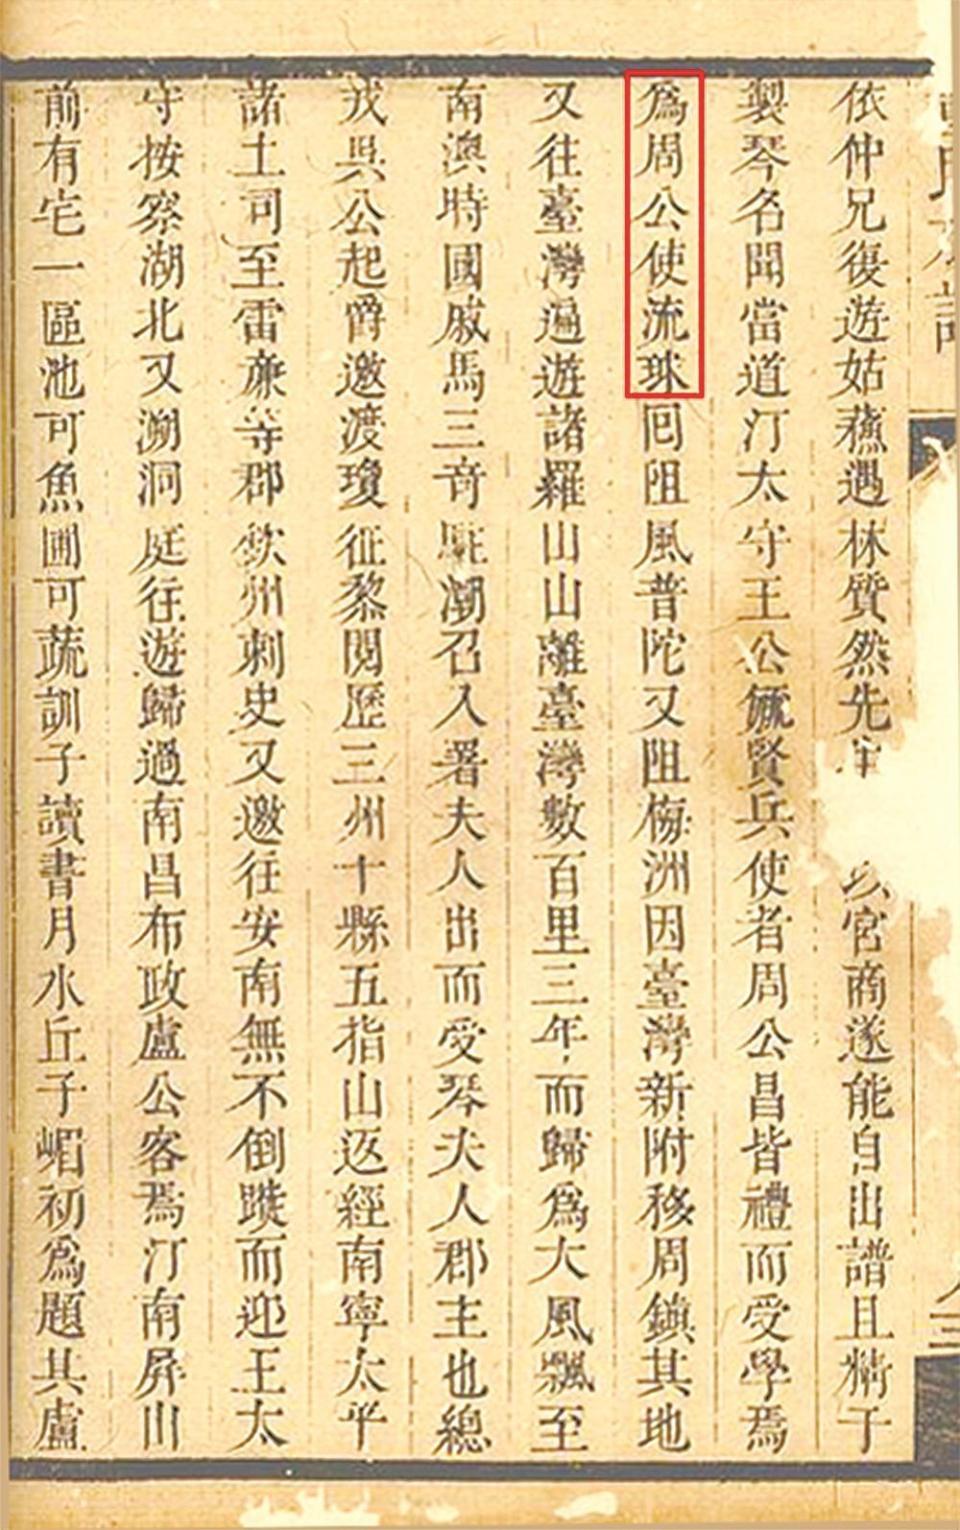 依仲兄復遊姑蘇遇林質然先宮商遂能自出譜且精于
製琴名聞當道汀太守王公廠賢兵使者周公昌皆禮而受學焉
爲周公使流球囘阻風普陀又阻梅洲因臺灣新附移周鎮其地
又往臺灣遍遊諸羅山山離臺灣數百里三年而歸爲大風飄至
南澳時國戚馬三奇駐潮召入署夫人出而受琴夫人郡主也總
戎吳公起爵邀渡瓊征黎閱歷三州十縣五指山返經南寧太平
諸土司至雷亷等郡欽州刺史又邀往安南無不倒蹝而迎王太
守按察湖北又溯洞庭往遊歸過南昌布政盧公客焉汀南屏山
前有宅一區池可魚圃可蔬訓子讀書月水丘子嵋初爲題其廬